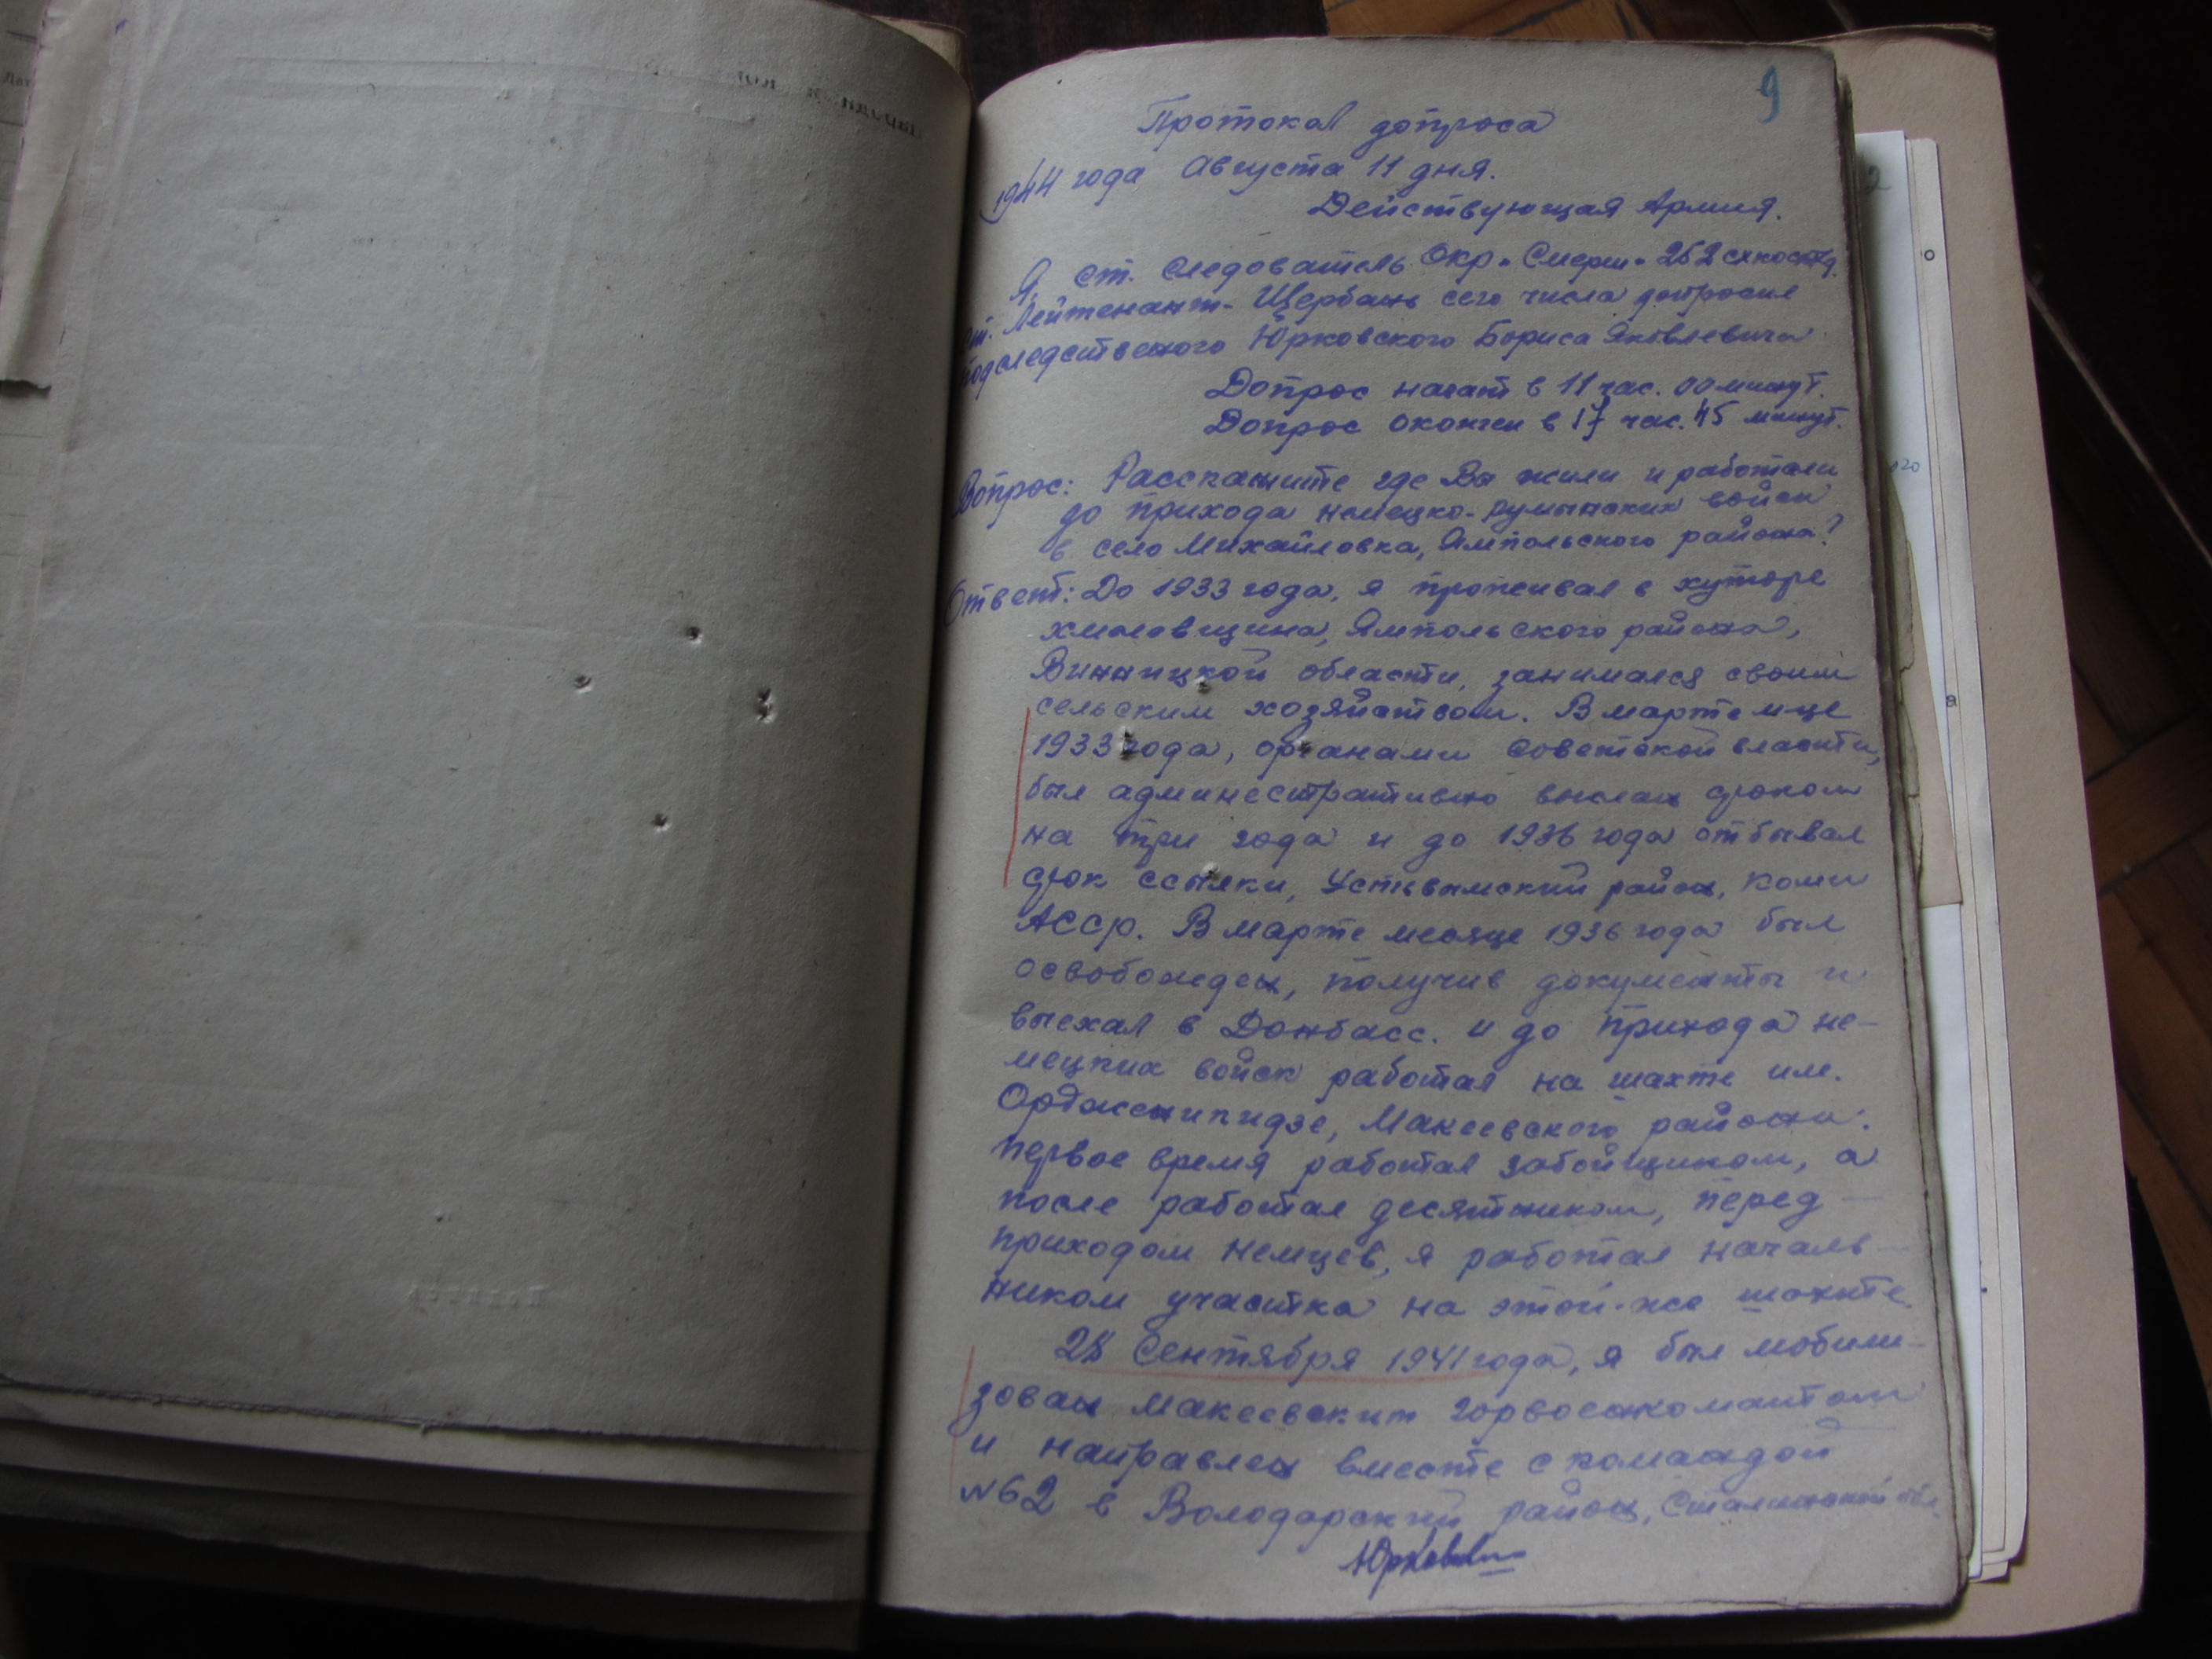 9
Протокол допроса
1944 года Августа 11 дня.
Действующая Армия.
Я, ст. следователь Окр "Смерш" 252
Ст. Лейтенант - Щербань сего числа допросил
подследственого Юрковского Бориса Яковлевича
Допрос начат в 11 час. 00 минут.
Допрос окончен в 17 час. 45 минут.
Вопрос: Расскажите где Вы жили и работали
до прихода немецко-румынских войск
в село Михайловка, Ямпольского района?
Ответ: До 1933 года, я проживал в хуторе
Ямпольского района,
Винницкой области, занимался своим
сельским хозяйством. В марте м-це
1933 года, органами советской власти,
был админестративно выслан сроком
на три года и до 1936 года отбывал
срок ссылки, Устьвымский район, Коми
АССР. В марте месяце 1936 года был
освобожден, получив документы и
выехал в Донбасс. и до прихода не-
мецких войск работал на шахте им.
Орджоникидзе, Макеевского района.
первое время работал забойщиком, а
после работал десятником, перед -
приходом немцев, я работал началь-
ником участка на этой-же шахте.
28 Сентября 1941 года, я был мобили-
зован Макеевским горвоенкоматом
и направлен вместе с командой
№62 в Володарский район, Сталинской обл.
Юрковский